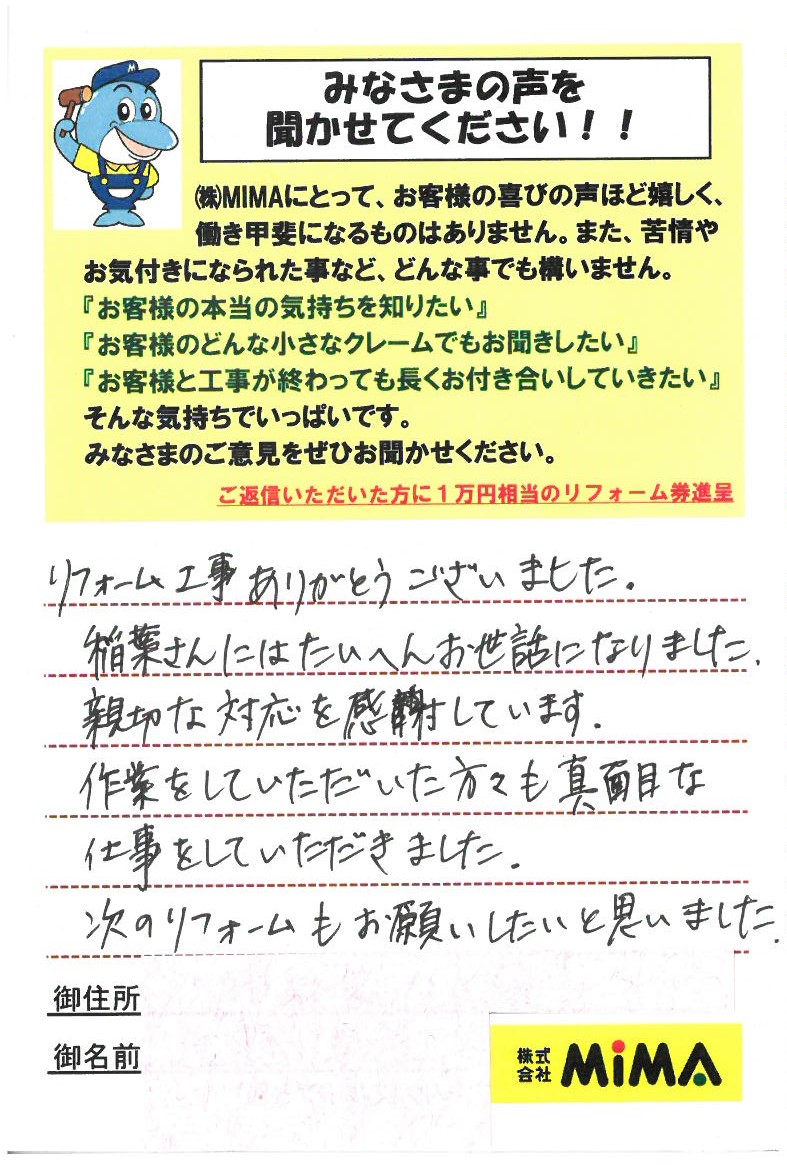 みなさまの声を
聞かせてください！！
M
㈱MIMAにとって、お客様の喜びの声ほど嬉しく、
働き甲斐になるものはありません。また、苦情や
お気付きになられた事など、どんな事でも構いません。
『お客様の本当の気持ちを知りたい』
『お客様のどんな小さなクレームでもお聞きしたい』
『お客様と工事が終わっても長くお付き合いしていきたい』
そんな気持ちでいっぱいです。
みなさまのご意見をぜひお聞かせください。
ご返信いただいた方に１万円相当のリフォーム券進呈
リフォーム工事ありがとうございました。
稲葉さんにはたいへんお世話になりました。
親切な対応を感謝しています。
作業をしていただいた方々も真面目な
仕事をしていただきました。
次のリフォームもお願いしたいと思いました。
御住所
御名前
株式
会社 MiMA